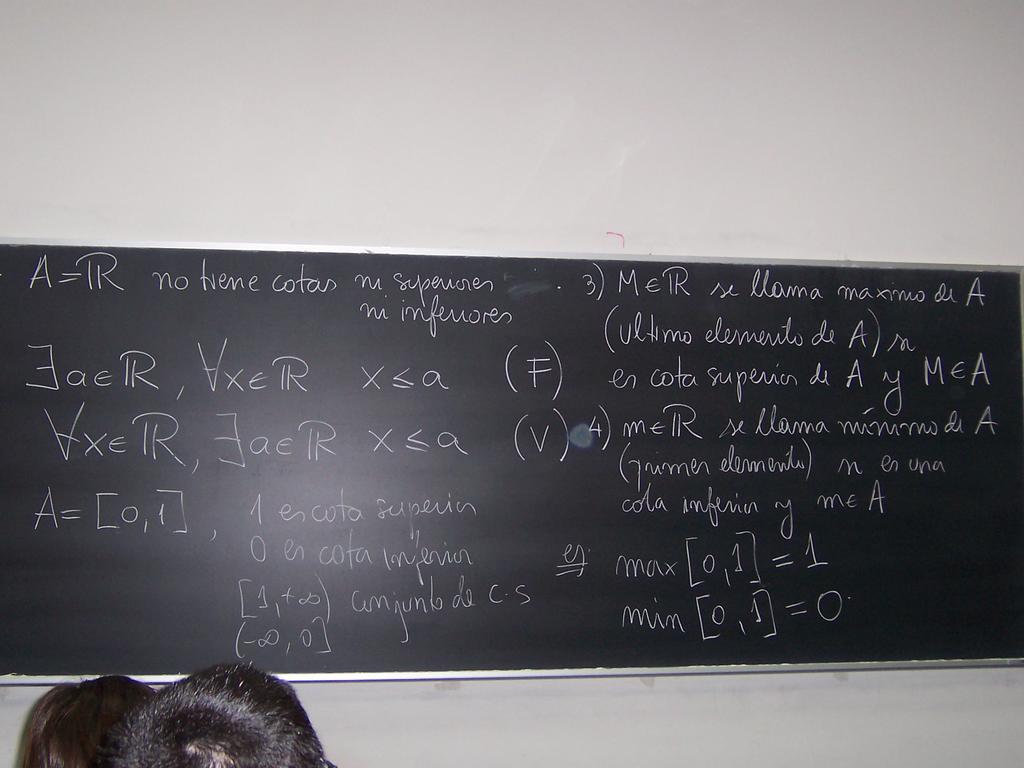 A = ℝ no tiene cotas ni superiores
ni inferiores
∃ a ∈ ℝ, ∀ x ∈ ℝ x ≤ a (F)
∀ x ∈ ℝ, ∃ a ∈ ℝ x ≤ a (V)
A = [0,1], 1 es cota superior
0 es cota inferior
[1,+∞) conjunto de c.s
(-∞,0]
3) M ∈ ℝ se llama maximo de A
(ultimo elemento de A) si
es cota superior de A y M ∈ A
4) m ∈ ℝ se llama mínimo de A
(primer elemento) si es una
cota inferior y m ∈ A
ej: max [0,1] = 1
min [0,1] = 0.